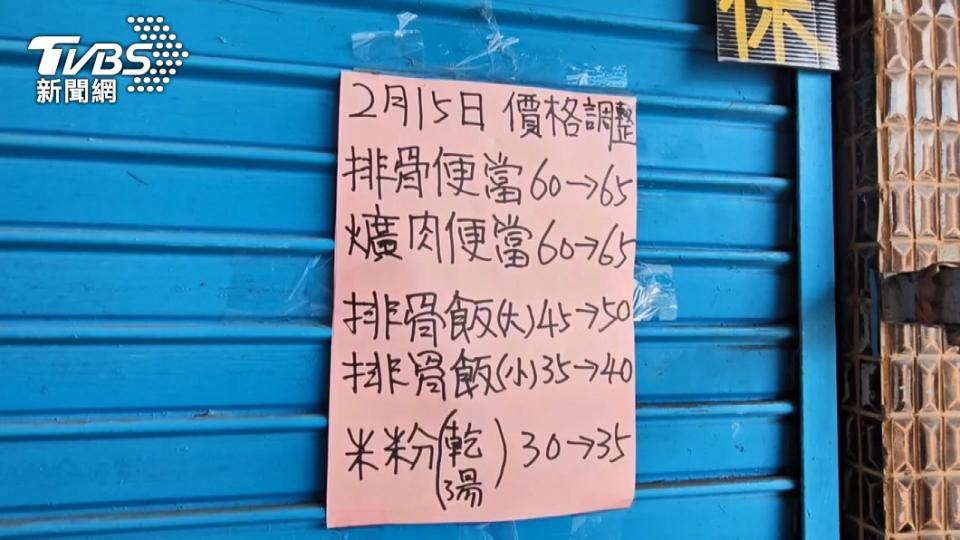 TVBS
新聞網
保
2月15日 價格調整
排骨便當60→65
爌肉便當60→65
排骨飯(大)45→50
排骨飯(小)35→40
米粉(乾湯)30→35